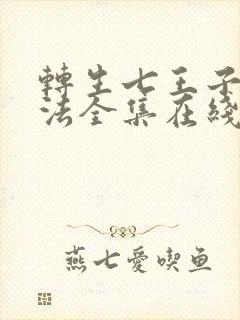 轉生七王子
法全集在綫
燕七愛喫鱼